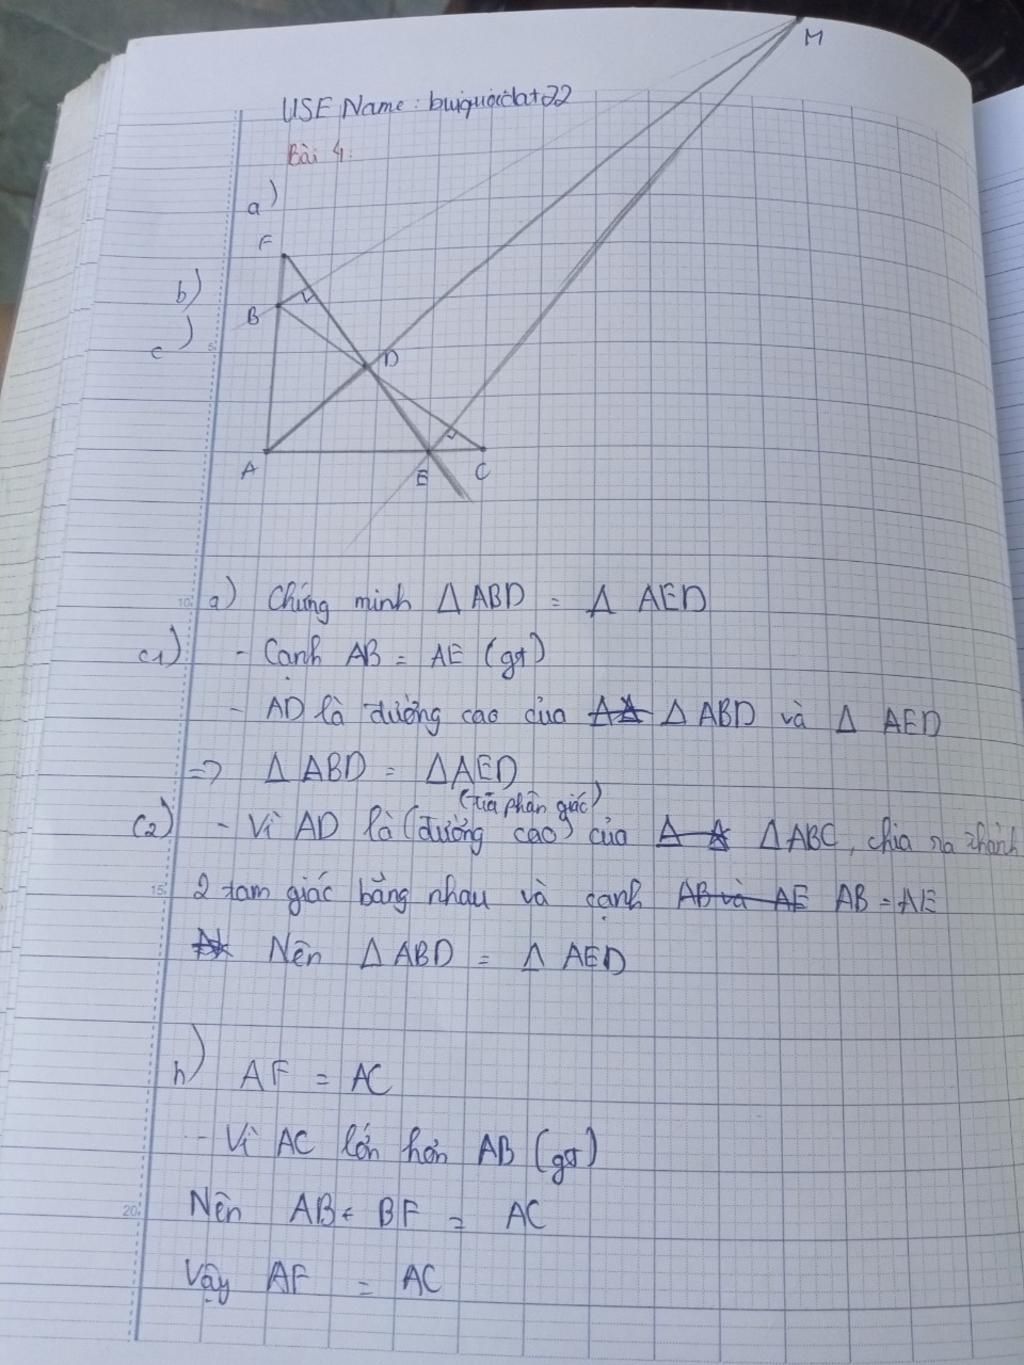 M
USE Name: buiquocdat22
Bài 4:
a)
F
b)
B
c)
D
A
E
C
a) Chứng minh Δ ABD = Δ AED
C1) - Cạnh AB = AE (gt)
- AD là đường cao của Δ ABD và Δ AED
=> Δ ABD = ΔAED
(tia phân giác)
C2) - Vì AD là (đường cao) của Δ ABC, chia ra thành
2 tam giác bằng nhau và cạnh AB và AE AB = AE
Nên Δ ABD = Δ AED
b) AF = AC
- Vì AC lớn hơn AB (gt)
Nên AB + BF = AC
Vậy AF = AC
5
10
15
20